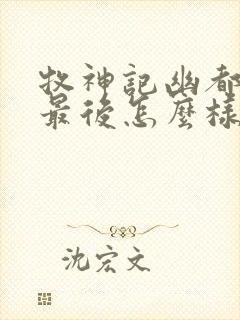 牧神記幽都
最後怎麼樣
沈宏文